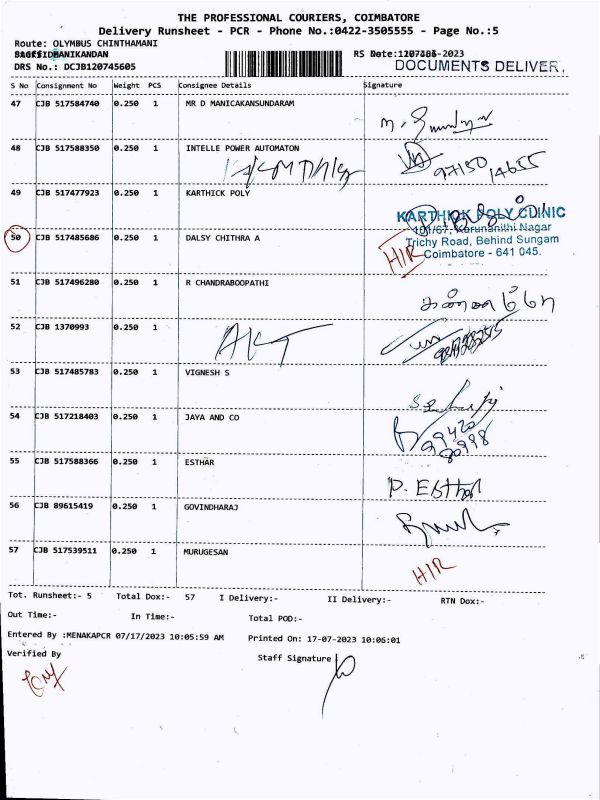 THE PROFESSIONAL COURIERS, COIMBATORE
Delivery Runsheet - PCR - Phone No.:0422-3505555 - Page No.:5
Route: OLYMBUS CHINTHAMANI
MANIKANDAN
DRS No.: DCJB120745605
RS Date: -2023
DOCUMENTS DELIVER,
S No Consignment No Weight PCS Consignee Details Signature
47 CJB 517584740 0.250 1 MR D MANICAKANSUNDARAM
48 CJB 517588350 0.250 1 INTELLE POWER AUTOMATON
97150 14655
49 CJB 517477923 0.250 1 KARTHICK POLY
KARTHICK POLY CLINIC
101/67, Karunanithi Nagar
50 CJB 517485686 0.250 1 DALSY CHITHRA A
Trichy Road, Behind Sungam
Coimbatore - 641 045.
H/R
51 CJB 517496280 0.250 1 R CHANDRABOOPATHI
52 CJB 1370993 0.250 1
AKT
53 CJB 517485783 0.250 1 VIGNESH S
54 CJB 517218403 0.250 1 JAYA AND CO
99420
80998
55 CJB 517588366 0.250 1 ESTHAR
P. Esthar
56 CJB 89615419 0.250 1 GOVINDHARAJ
57 CJB 517539511 0.250 1 MURUGESAN
H/R
Tot. Runsheet:- 5 Total Dox:- 57 I Delivery:- II Delivery:- RTN Dox:-
Out Time:- In Time:- Total POD:-
Entered By :MENAKAPCR 07/17/2023 10:05:59 AM Printed On: 17-07-2023 10:06:01
Verified By Staff Signature